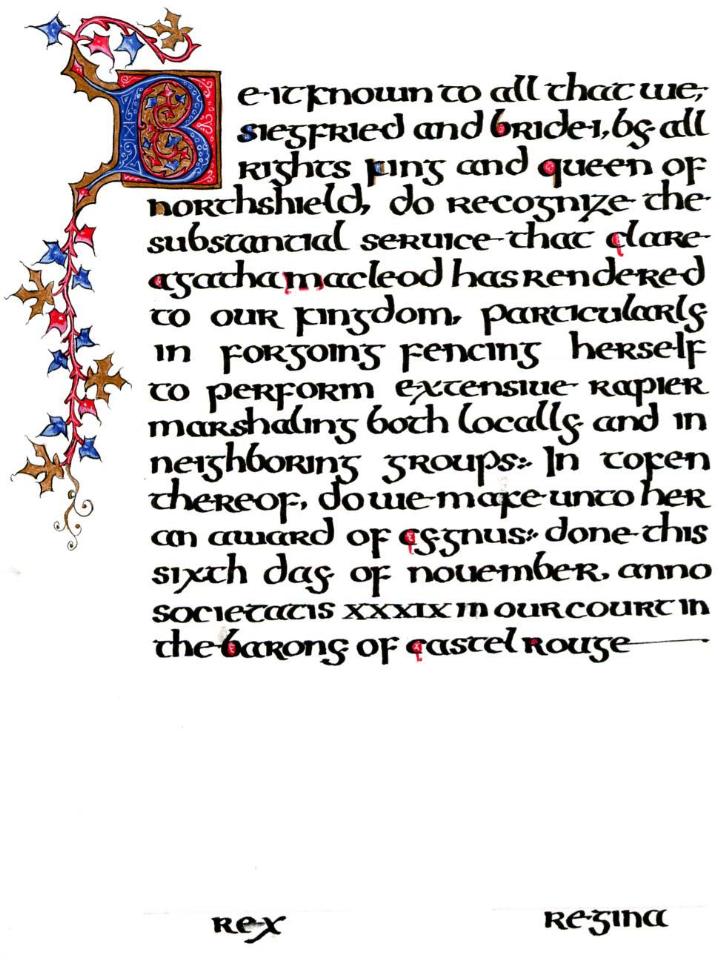 Be it known to all that we,
siegfried and bridei, by all
rights king and queen of
northshield, do recognize the
substantial service that clare
agatha macleod has rendered
to our kingdom, particularly
in forgoing fencing herself
to perform extensive rapier
marshaling both locally and in
neighboring groups:. In token
thereof, do we make unto her
an award of cygnus:. done this
sixth day of november, anno
societatis xxxix in our court in
the barony of castel rouge
rex regina